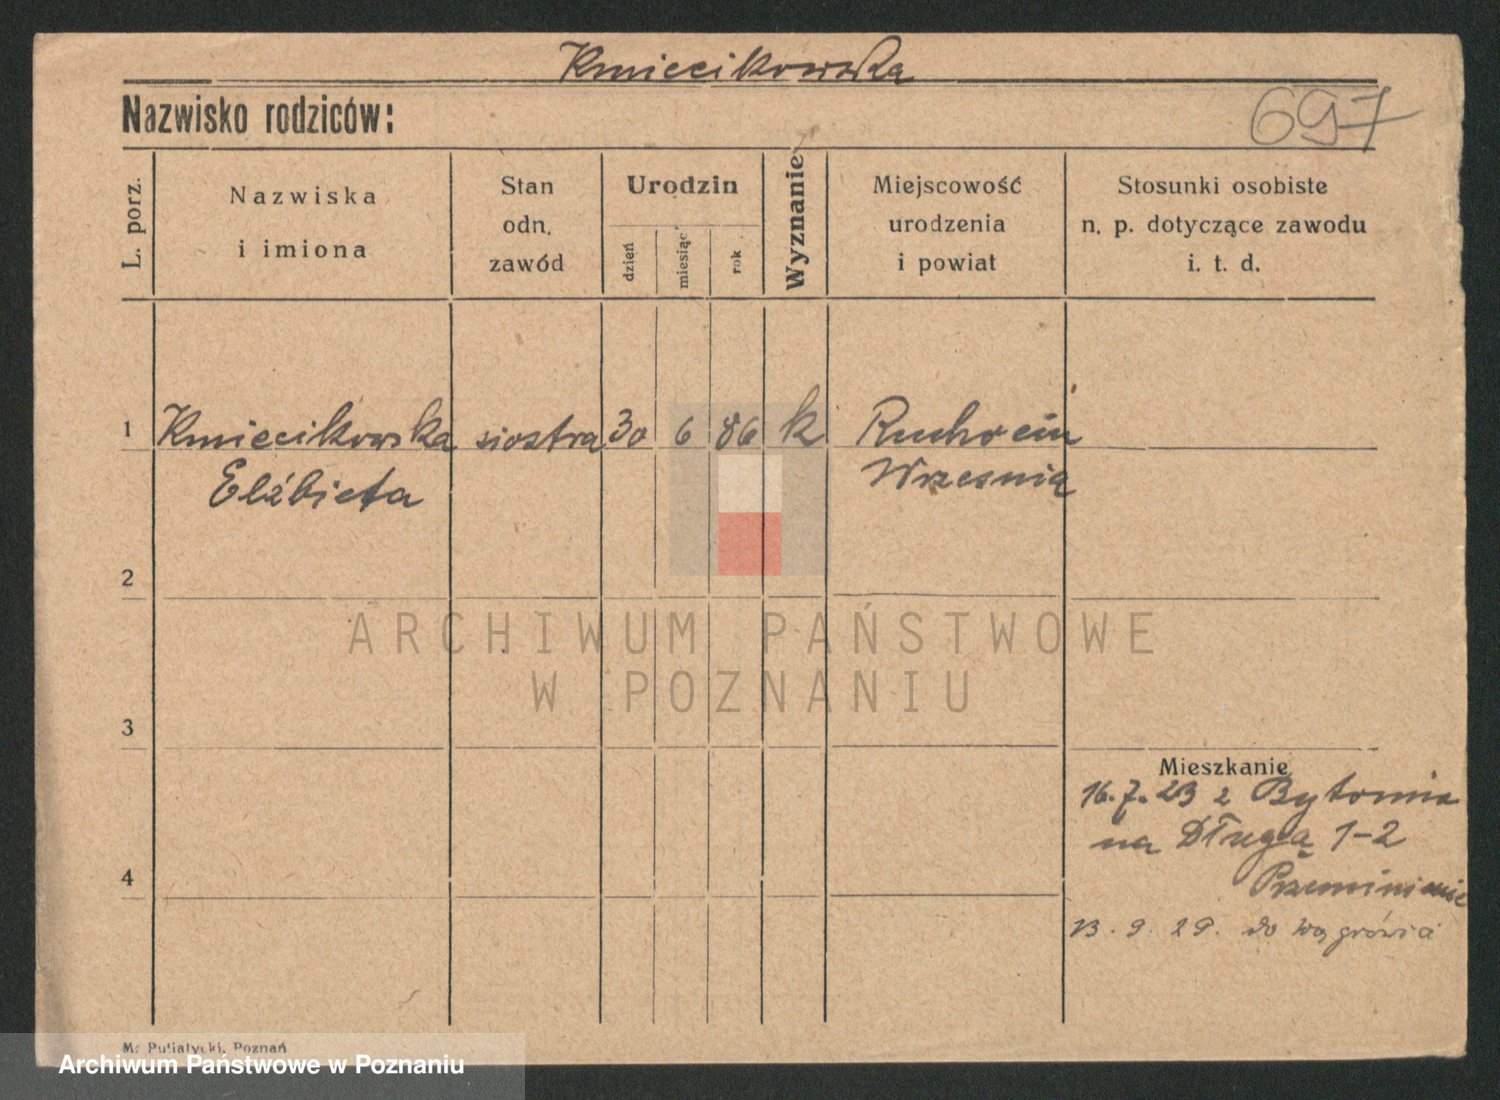 Kmiecikowska
Nazwisko rodziców:
697
L. porz.
Nazwiska
i imiona
Stan
odn.
zawód
Urodzin
dzień
miesiąc
rok
Wyznanie
Miejscowość
urodzenia
i powiat
Stosunki osobiste
n. p. dotyczące zawodu
i. t. d.
1 Kmiecikowska siostra 30 6 86 k Ruchocin
Elżbieta Wrzesnią
2
ARCHIWUM PAŃSTWOWE
W POZNANIU
3
Mieszkanie
16.7.23 z Bytomia
na Długą 1-2
4
13.9.29. do Wągrówca
Mr Putiatycki, Poznań
Archiwum Państwowe w Poznaniu